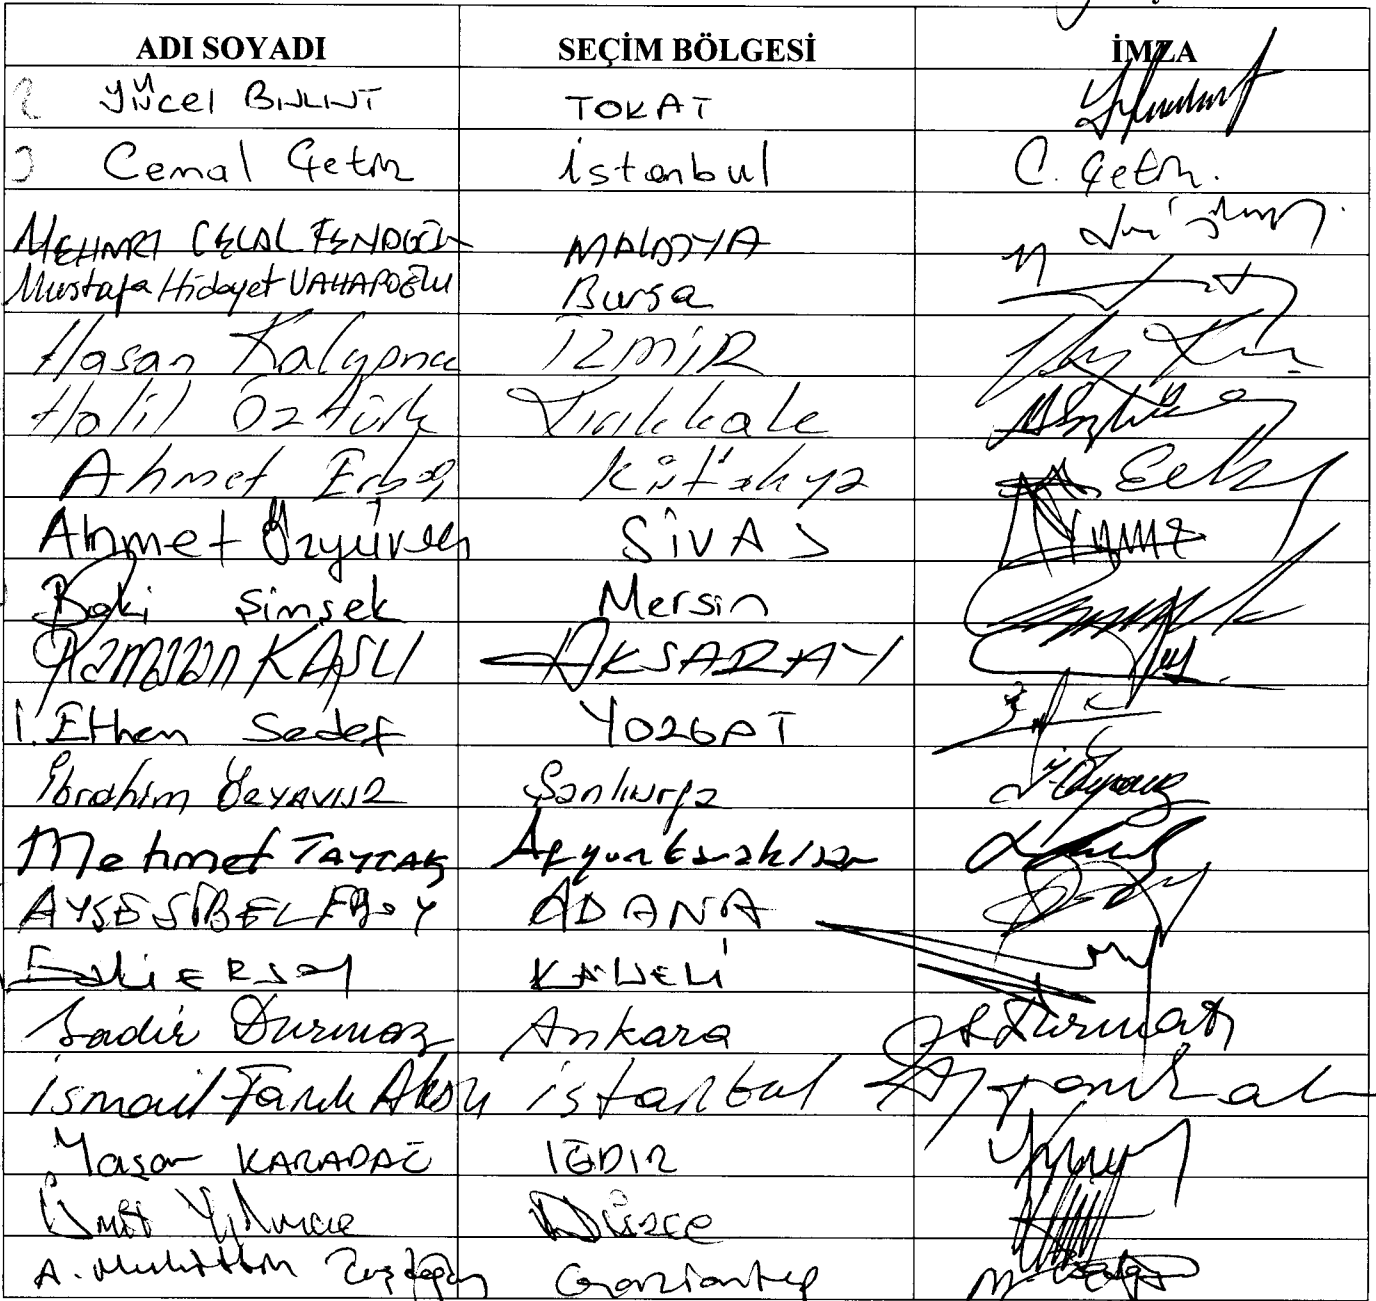 ADI SOYADI SEÇİM BÖLGESİ İMZA
Yücel BULUT TOKAT
Cemal Çetin İstanbul C. Çetin.
MEHMET CELAL FENDOĞLU MALATYA
Mustafa Hidayet VAHAPOĞLU Bursa
Hasan Kalyoncu İZMİR
Halil Öztürk Kırıkkale
Ahmet Erbaş Kütahya
Ahmet Özyürek SİVAS
Baki Şimşek Mersin
Ramazan KAŞLI AKSARAY
İ. Ethem Sedef YOZGAT
İbrahim ÖZYAVUZ Şanlıurfa
Mehmet TAYTAK Afyonkarahisar
AYŞE SİBEL ERSOY ADANA
Baki ERSOY KAYSERİ
Sadir Durmaz Ankara S. Durmaz
İsmail Faruk Aksu İstanbul
Yaşar KARADAĞ IĞDIR
Ümit Yılmaz Düzce
A. Muhittin Taşdoğan Gaziantep